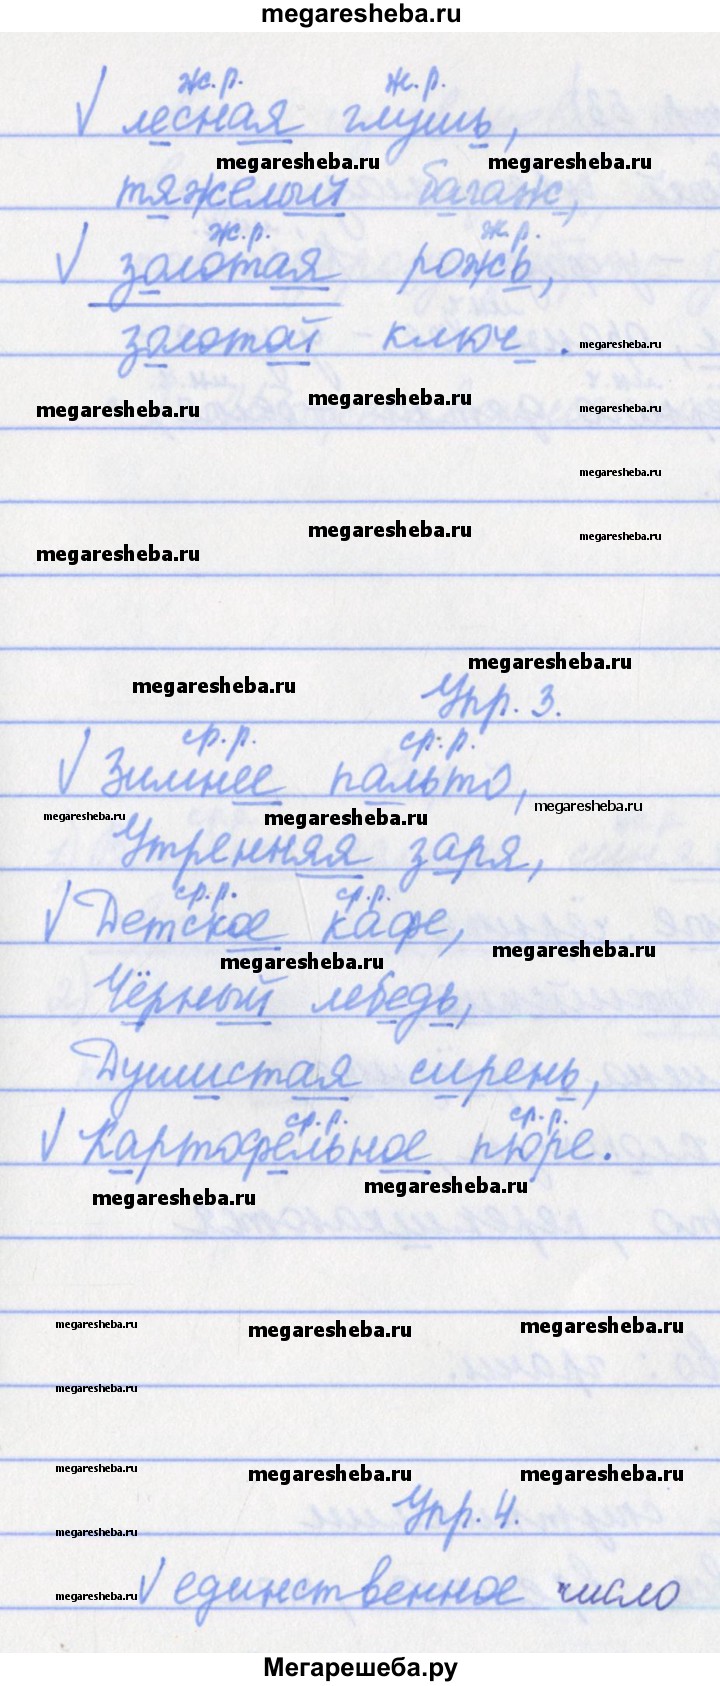 megaresheba.ru
ж.р. ж.р.
√ лесная глушь,
megaresheba.ru megaresheba.ru
тяжелый багаж,
ж.р. ж.р.
√ золотая рожь,
золотой ключ.
megaresheba.ru
megaresheba.ru megaresheba.ru megaresheba.ru
megaresheba.ru
megaresheba.ru megaresheba.ru megaresheba.ru
megaresheba.ru megaresheba.ru
Упр. 3.
ср.р. ср.р.
√ Зимнее пальто,
megaresheba.ru megaresheba.ru megaresheba.ru
Утренняя заря,
ср.р. ср.р.
√ Детское кафе,
megaresheba.ru megaresheba.ru
Чёрный лебедь,
Душистая сирень,
ср.р. ср.р.
√ Картофельное пюре.
megaresheba.ru megaresheba.ru
megaresheba.ru megaresheba.ru megaresheba.ru
megaresheba.ru
megaresheba.ru megaresheba.ru megaresheba.ru
Упр. 4.
megaresheba.ru
megaresheba.ru √ единственное число
Мегарешеба.ру